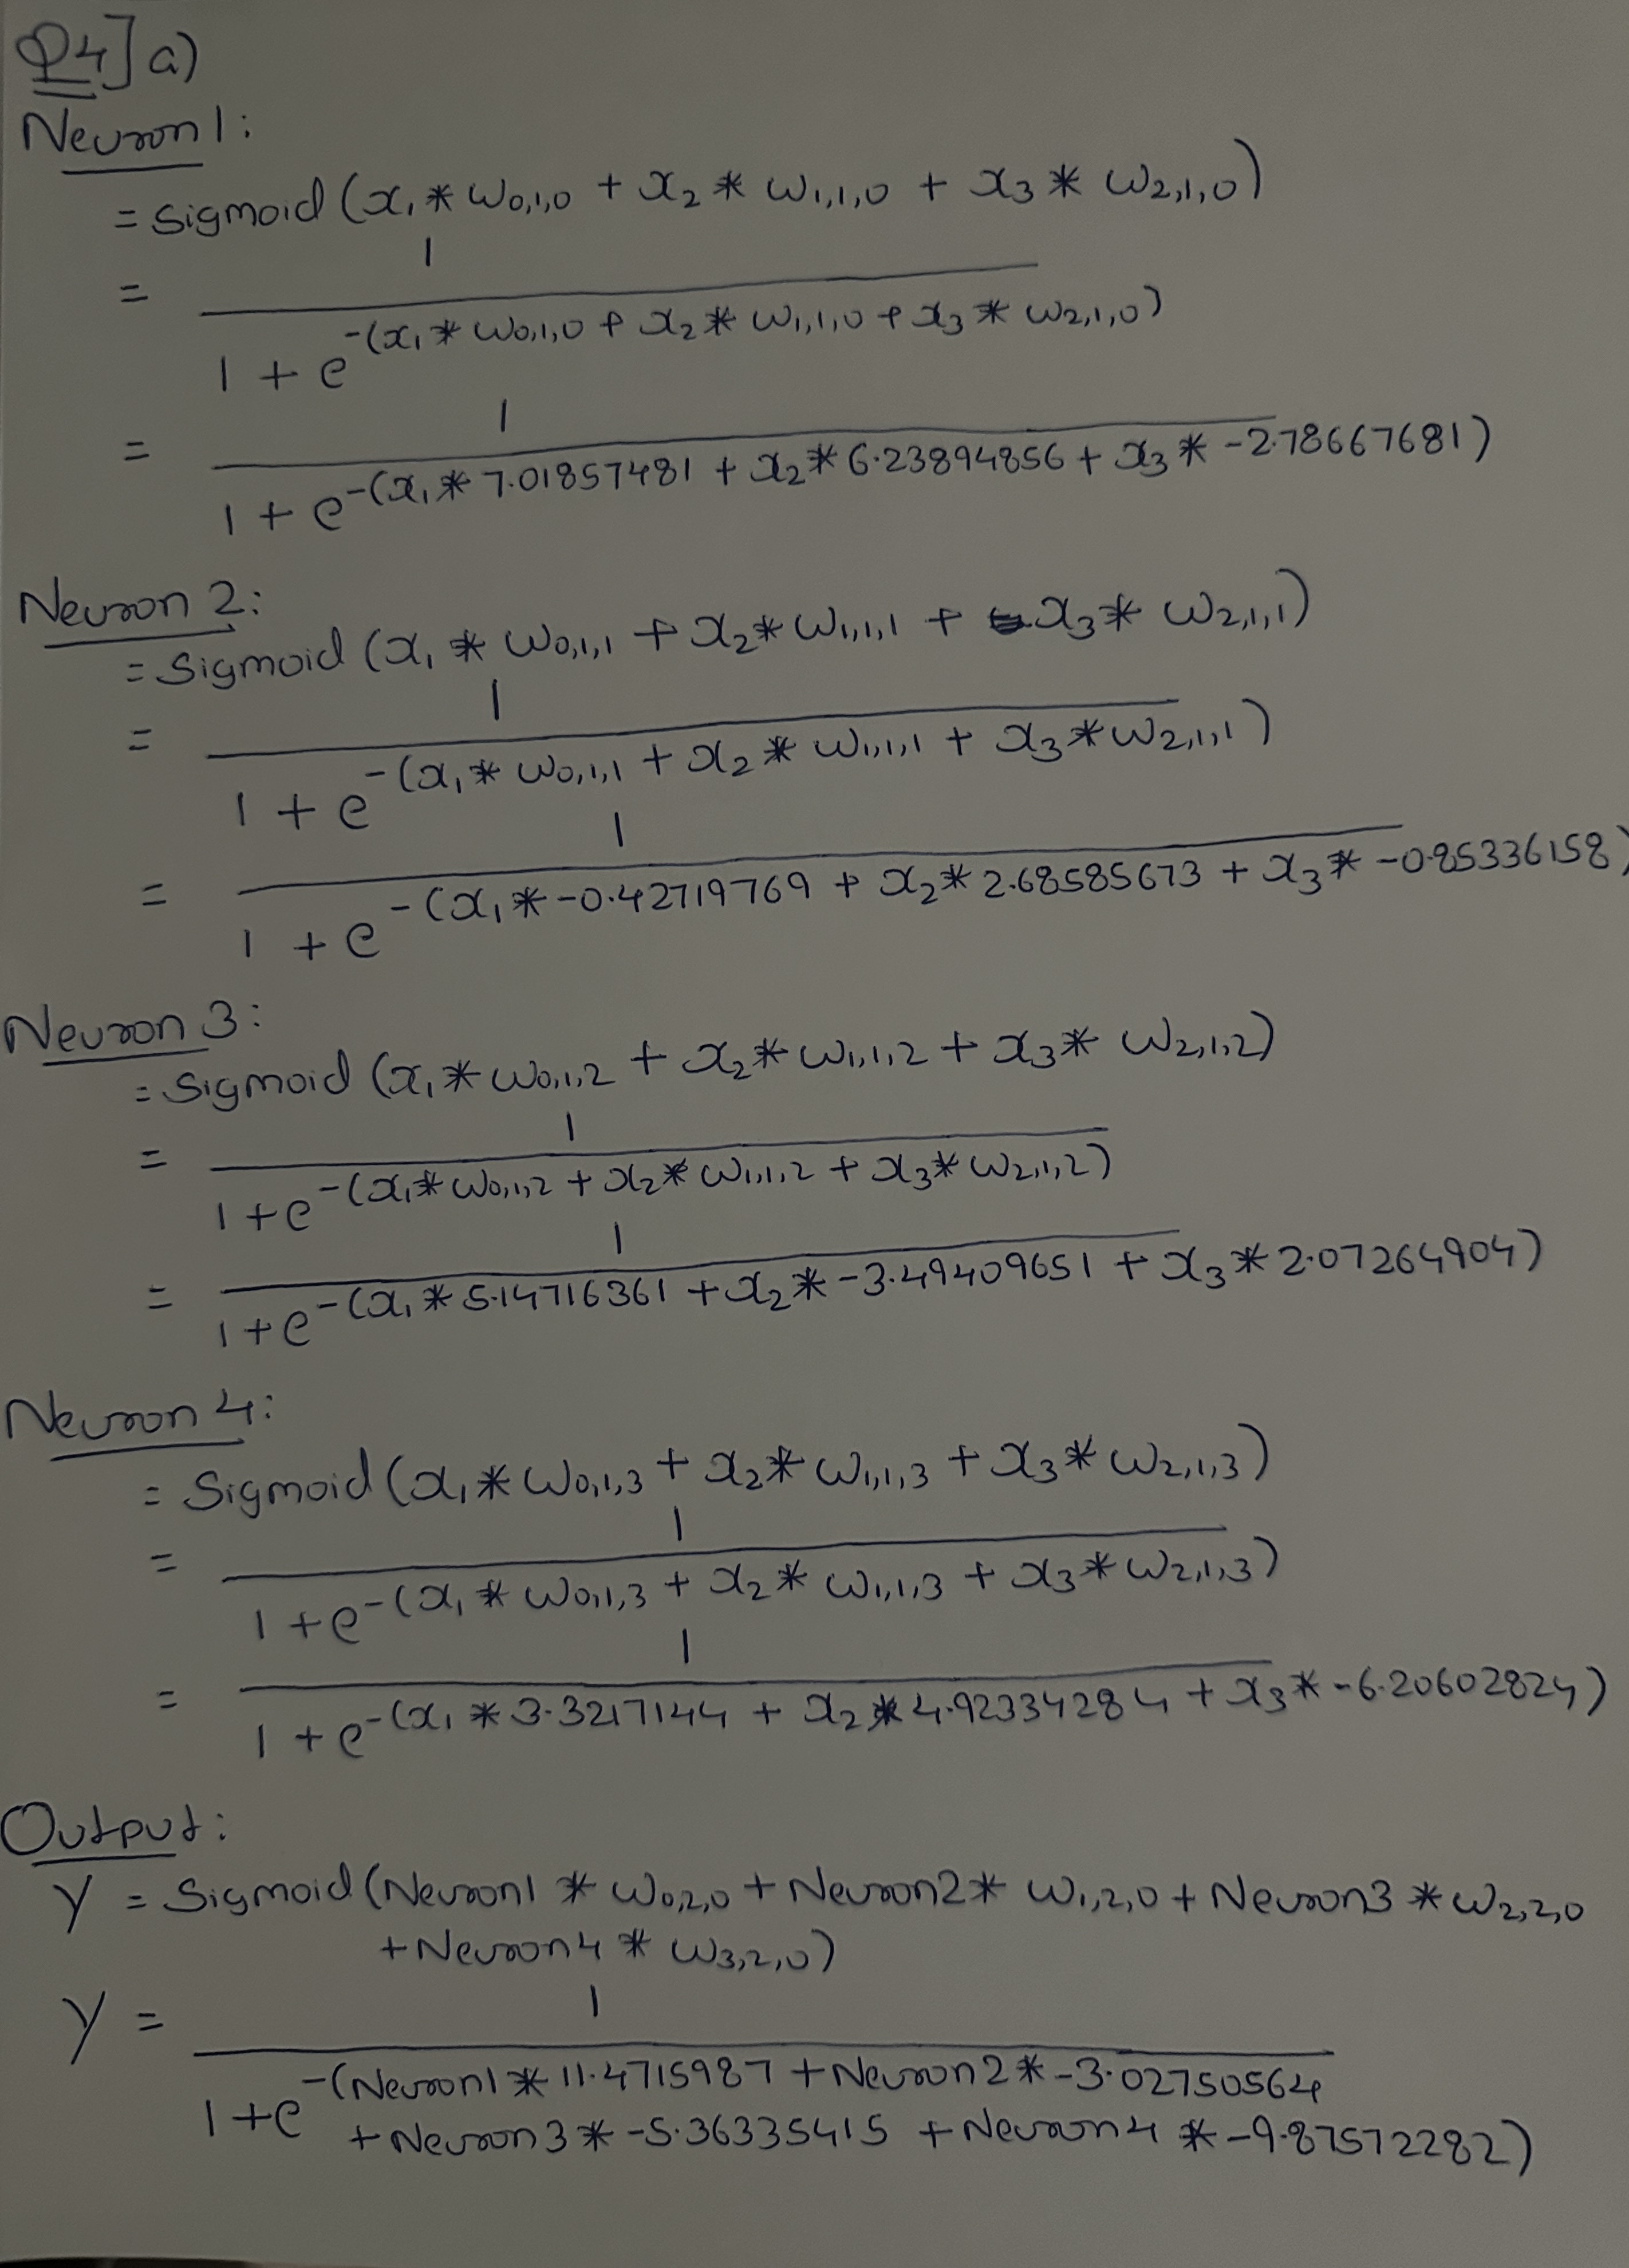 Q4] a)
Neuron 1:
= Sigmoid (x₁ * ω₀,₁,₀ + x₂ * ω₁,₁,₀ + x₃ * ω₂,₁,₀)
1
=
1 + e^-(x₁ * ω₀,₁,₀ + x₂ * ω₁,₁,₀ + x₃ * ω₂,₁,₀)
1
=
1 + e^-(x₁ * 7.01857481 + x₂ * 6.23894856 + x₃ * -2.78667681)
Neuron 2:
= Sigmoid (x₁ * ω₀,₁,₁ + x₂ * ω₁,₁,₁ + x₃ * ω₂,₁,₁)
1
=
1 + e^-(x₁ * ω₀,₁,₁ + x₂ * ω₁,₁,₁ + x₃ * ω₂,₁,₁)
1
=
1 + e^-(x₁ * -0.42719769 + x₂ * 2.68585673 + x₃ * -0.85336158)
Neuron 3:
= Sigmoid (x₁ * ω₀,₁,₂ + x₂ * ω₁,₁,₂ + x₃ * ω₂,₁,₂)
1
=
1 + e^-(x₁ * ω₀,₁,₂ + x₂ * ω₁,₁,₂ + x₃ * ω₂,₁,₂)
1
=
1 + e^-(x₁ * 5.14716361 + x₂ * -3.49409651 + x₃ * 2.07264904)
Neuron 4:
= Sigmoid (x₁ * ω₀,₁,₃ + x₂ * ω₁,₁,₃ + x₃ * ω₂,₁,₃)
1
=
1 + e^-(x₁ * ω₀,₁,₃ + x₂ * ω₁,₁,₃ + x₃ * ω₂,₁,₃)
1
=
1 + e^-(x₁ * 3.3217144 + x₂ * 4.92334284 + x₃ * -6.20602824)
Output:
Y = Sigmoid (Neuron1 * ω₀,₂,₀ + Neuron2 * ω₁,₂,₀ + Neuron3 * ω₂,₂,₀
+ Neuron4 * ω₃,₂,₀)
1
Y =
1 + e^-(Neuron1 * 11.4715987 + Neuron2 * -3.02750564
+ Neuron3 * -5.36335415 + Neuron4 * -9.87572282)